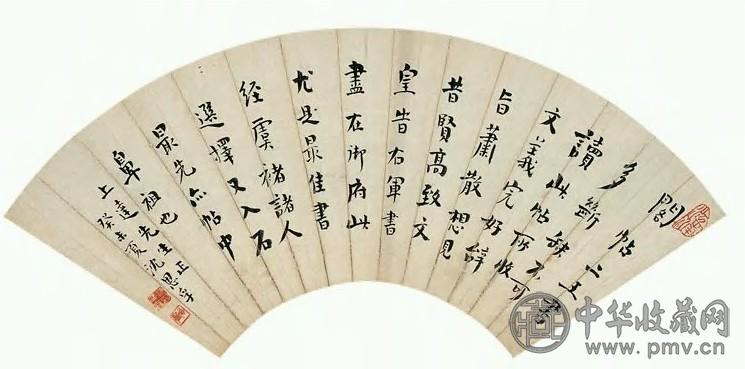 閣帖二王書
多斷缺不可
讀此帖所收
文義完好辭
旨蕭散想見
昔賢高致文
皇昔右軍書
盡在御府此
尤是最佳書
經虞褚諸人
選擇又入石
最先亦帖中
鼻祖也
上達先生正
癸未夏沈思孚
中华收藏网
www.pmv.cn